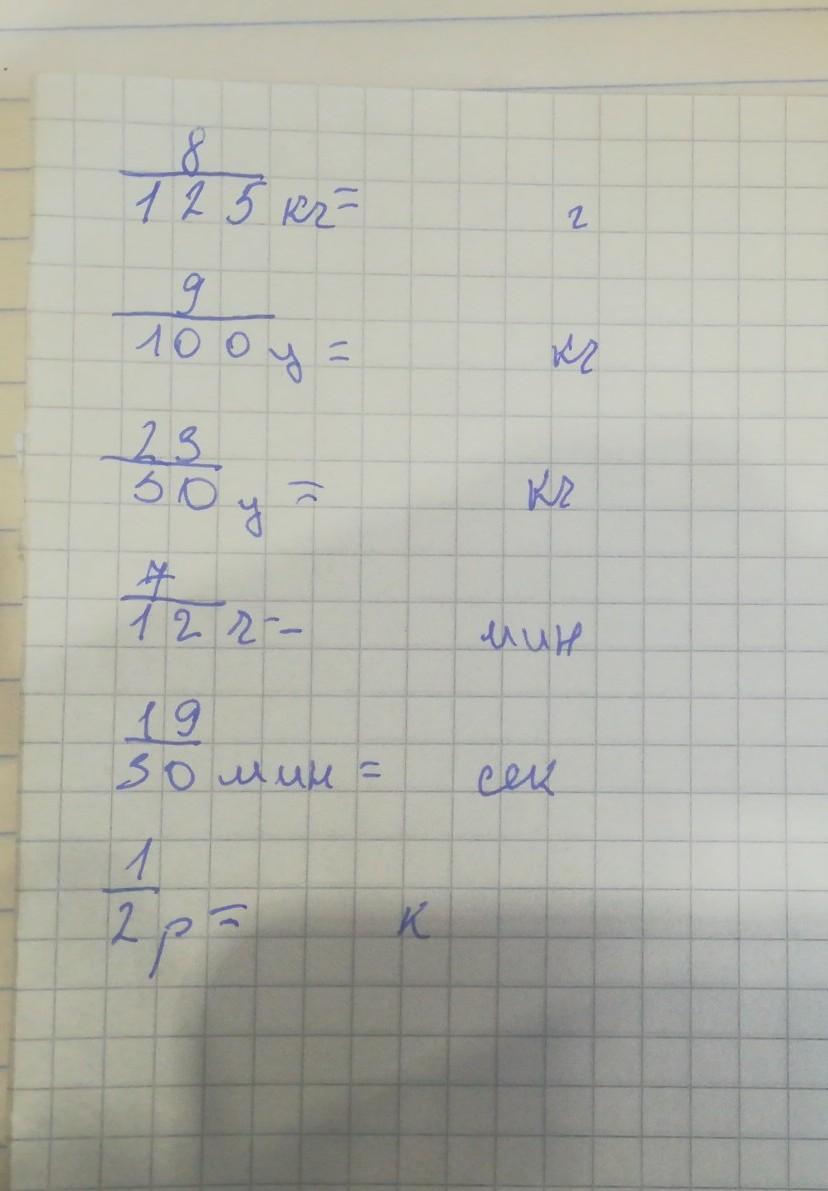 8
125 кг = г
9
100 ц = кг
23
50 ц = кг
7
12 ч - мин
19
30 мин = сек
1
2 р = к